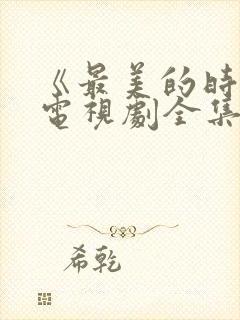 《最美的時
電視劇全集
希乾